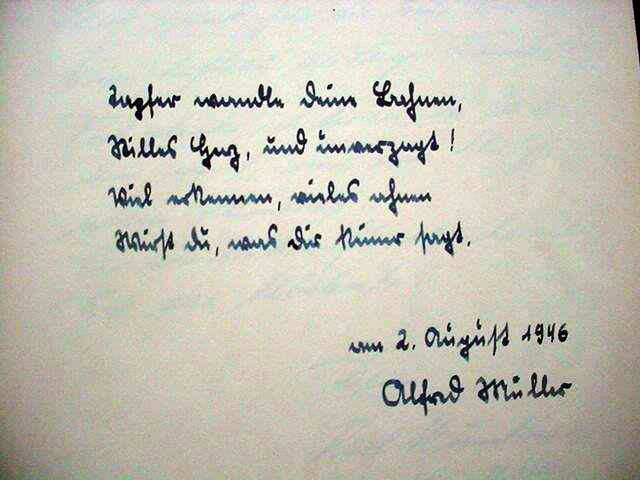 Tapfer wandle deine Bahnen,
Stilles Herz, und unverzagt!
Viel erkennen, vieles ahnen
Wirst du, was dir keiner sagt.
am 2. August 1946
Alfred Müller